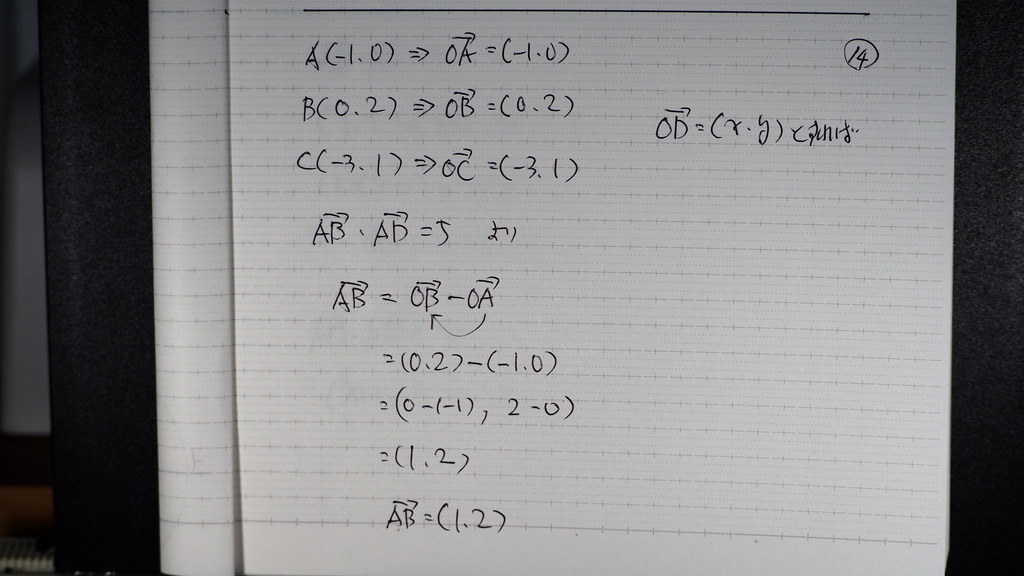 A(-1.0) ⇒ \overrightarrow{OA} = (-1.0)
⑭
B(0.2) ⇒ \overrightarrow{OB} = (0.2)
\overrightarrow{OD} = (x.y) とすれば
C(-3.1) ⇒ \overrightarrow{OC} = (-3.1)
\overrightarrow{AB} · \overrightarrow{AD} = 5 より
\overrightarrow{AB} = \overrightarrow{OB} - \overrightarrow{OA}
= (0.2) - (-1.0)
= (0-(-1), 2-0)
= (1.2)
\overrightarrow{AB} = (1.2)